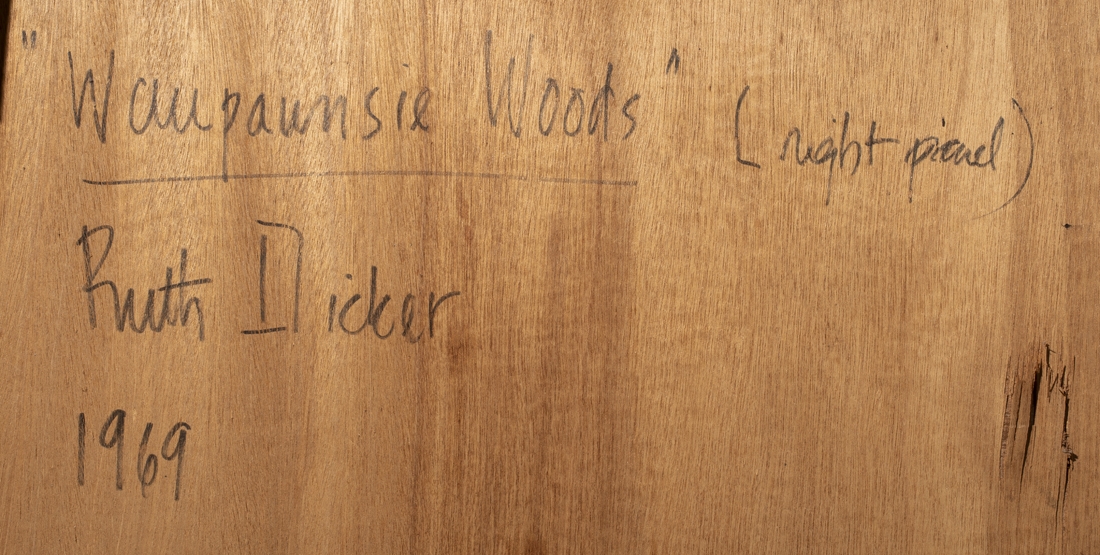 "Waupaunsie Woods" (right panel)
Ruth Dicker
1969